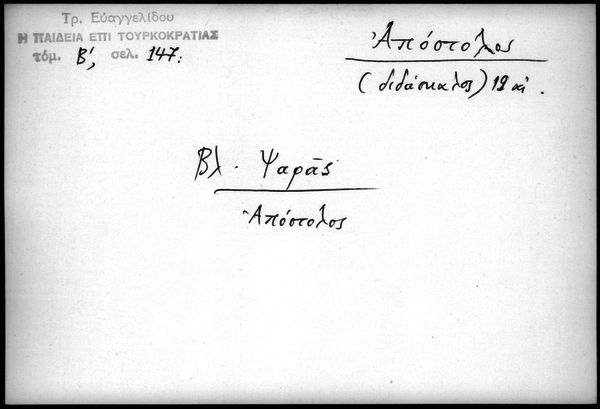 Τρ. Εὐαγγελίδου
Η ΠΑΙΔΕΙΑ ΕΠΙ ΤΟΥΡΚΟΚΡΑΤΙΑΣ
τόμ. Β΄, σελ. 147.
Ἀπόστολος
(διδάσκαλος) 19 αἰ.
Βλ. Ψαρᾶς
Ἀπόστολος